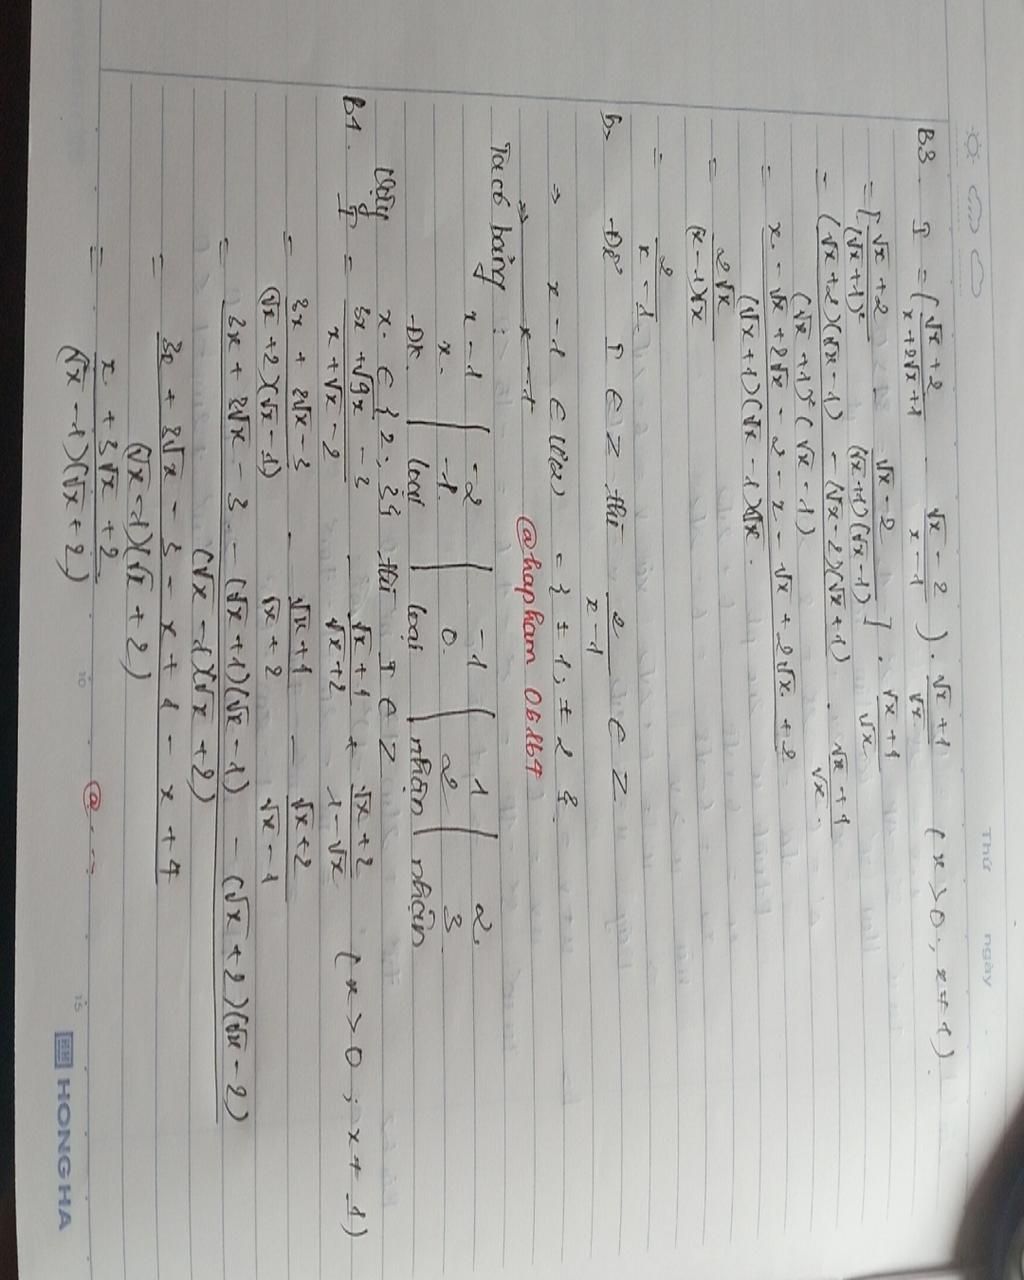 Thứ ngày
B3 P = (\frac{√x + 2}{x + 2√x + 1} - \frac{√x - 2}{x - 1}) . \frac{√x + 1}{√x} (x > 0 ; x ≠ 1).
= [\frac{√x + 2}{(√x + 1)²} - \frac{√x - 2}{(√x + 1)(√x - 1)}] . \frac{√x + 1}{√x}
= \frac{(√x + 2)(√x - 1) - (√x - 2)(√x + 1)}{(√x + 1)² (√x - 1)} . \frac{√x + 1}{√x}
= \frac{x - √x + 2√x - 2 - x - √x + 2√x + 2}{(√x + 1)(√x - 1)√x}.
= \frac{2√x}{(x - 1)√x}
= \frac{2}{x - 1}
b, Để P ∈ Z thì \frac{2}{x - 1} ∈ Z
⇒ x - 1 ∈ Ư(2) = { ± 1 ; ± 2 }
@hapham 06164
Ta có bảng :
x - 1 | -2 | -1 | 1 | 2
x. | -1 | 0. | 2 | 3
ĐK | loại | loại | nhận | nhận
Vậy x ∈ { 2 ; 3 } thì P ∈ Z
B4. P = \frac{3x + √9x - 3}{x + √x - 2} - \frac{√x + 1}{√x + 2} + \frac{√x + 2}{1 - √x} (x > 0 ; x ≠ 1)
= \frac{3x + 3√x - 3}{(√x + 2)(√x - 1)} - \frac{√x + 1}{√x + 2} - \frac{√x + 2}{√x - 1}
= \frac{3x + 3√x - 3 - (√x + 1)(√x - 1) - (√x + 2)(√x - 2)}{(√x - 1)(√x + 2)}
= \frac{3x + 3√x - 3 - x + 1 - x + 4}{(√x - 1)(√x + 2)}
= \frac{x + 3√x + 2}{(√x - 1)(√x + 2)}
10 15
HONG HA